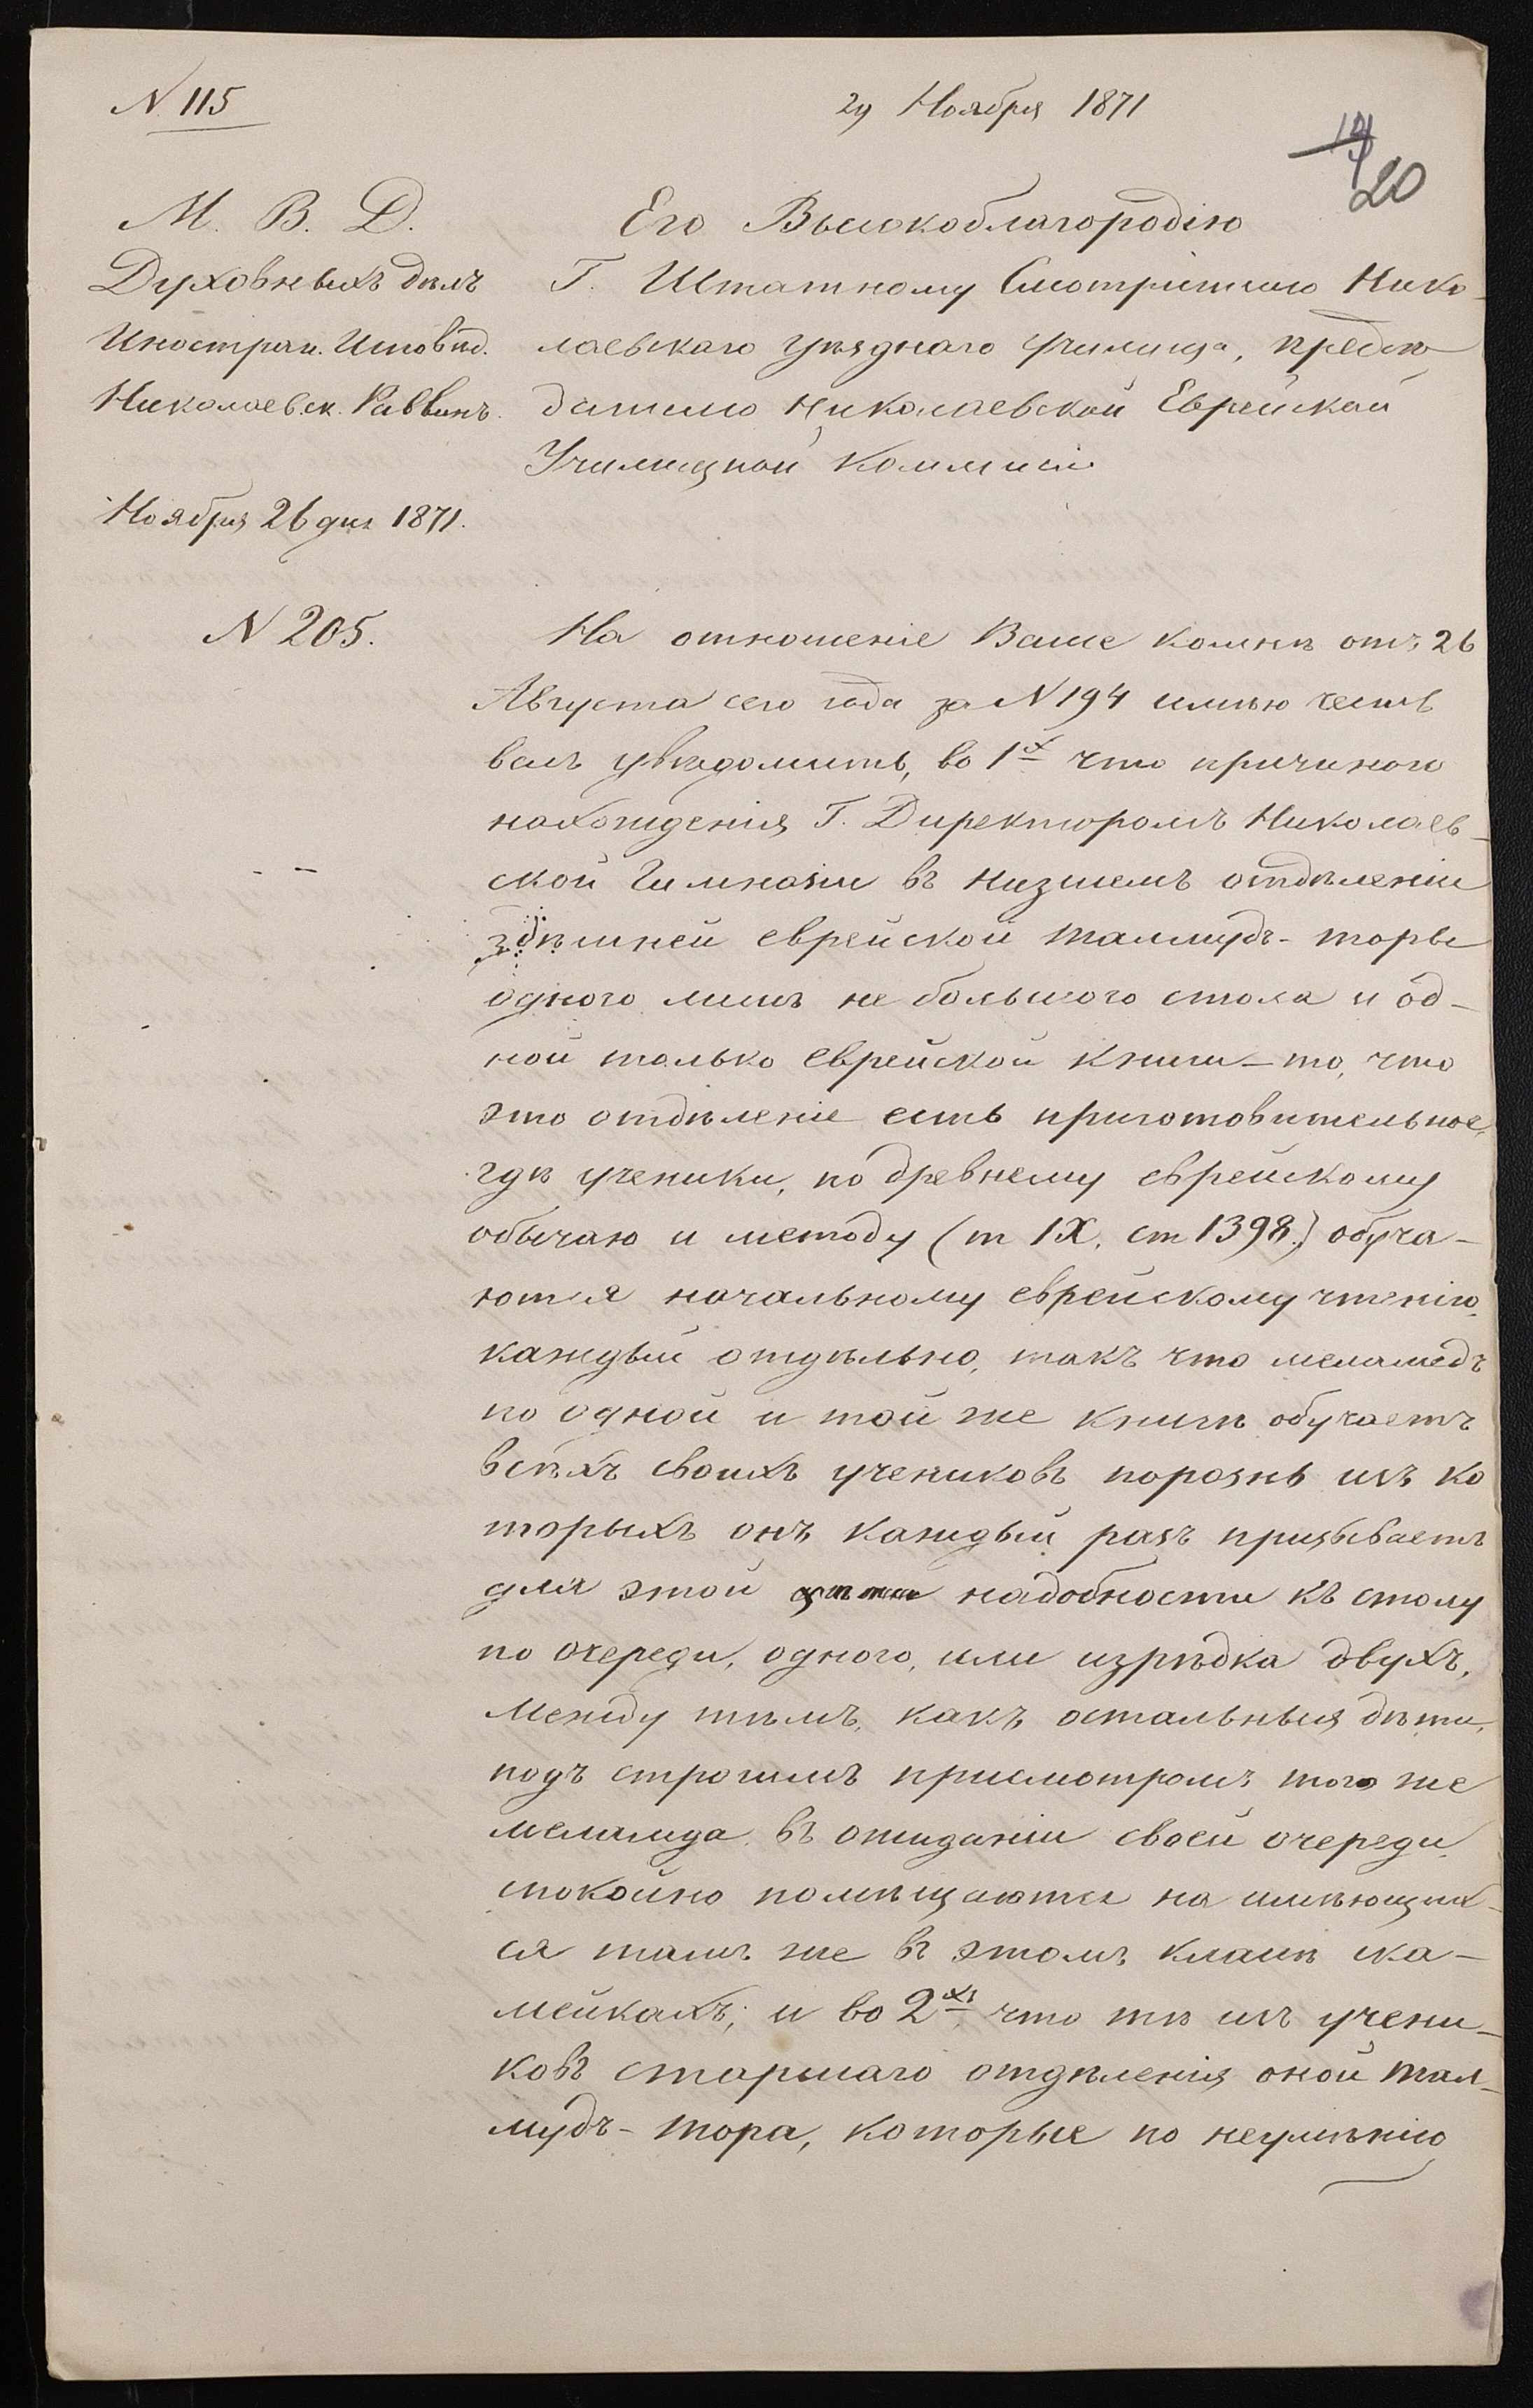 N 115
29 Ноября 1871
20
М. В. Д.
Духовныхъ дѣлъ
Иностран. Исповѣд.
Николаевск. Раввинъ.
Ноября 26 дня 1871.
N 205.
Его Высокоблагородію
Г. Штатному Смотрителю Нико-
лаевскаго уѣзднаго училища, предсѣ-
дателю Николаевской Еврейской
Училищной Коммисіи
На отношеніе Ваше ко мнѣ отъ 26
Августа сего года за N 194 имѣю честь
вамъ увѣдомить, во 1х что причиною
нахожденія Г. Директоромъ Николаев-
ской Гимназіи въ низшемъ отдѣленіи
здѣшней еврейской талмудъ-торы
одного лишь не большого стола и од-
ной только еврейской книги – то, что
это отдѣленіе есть приготовительное,
гдѣ ученики, по древнему еврейскому
обычаю и методу (т IX. ст 1398.) обуча-
ются начальному еврейскому чтенію,
каждый отдѣльно, такъ что меламедъ
по одной и той же книгѣ обучаетъ
всѣхъ своихъ учениковъ порознь изъ ко
торыхъ онъ каждый разъ призываетъ
для этой надобности къ столу
по очереди, одного, или изрѣдка двухъ,
между тѣмъ, какъ остальныя дѣти,
подъ строгимъ присмотромъ того же
меламда въ ожиданіи своей очереди,
спокойно помѣщаются на имѣющих-
ся тамъ же въ этомъ классѣ ска-
мейкахъ; и во 2хъ что тѣ изъ учени-
ковъ старшаго отдѣленія оной тал-
мудъ-тора, которые по неумѣнію